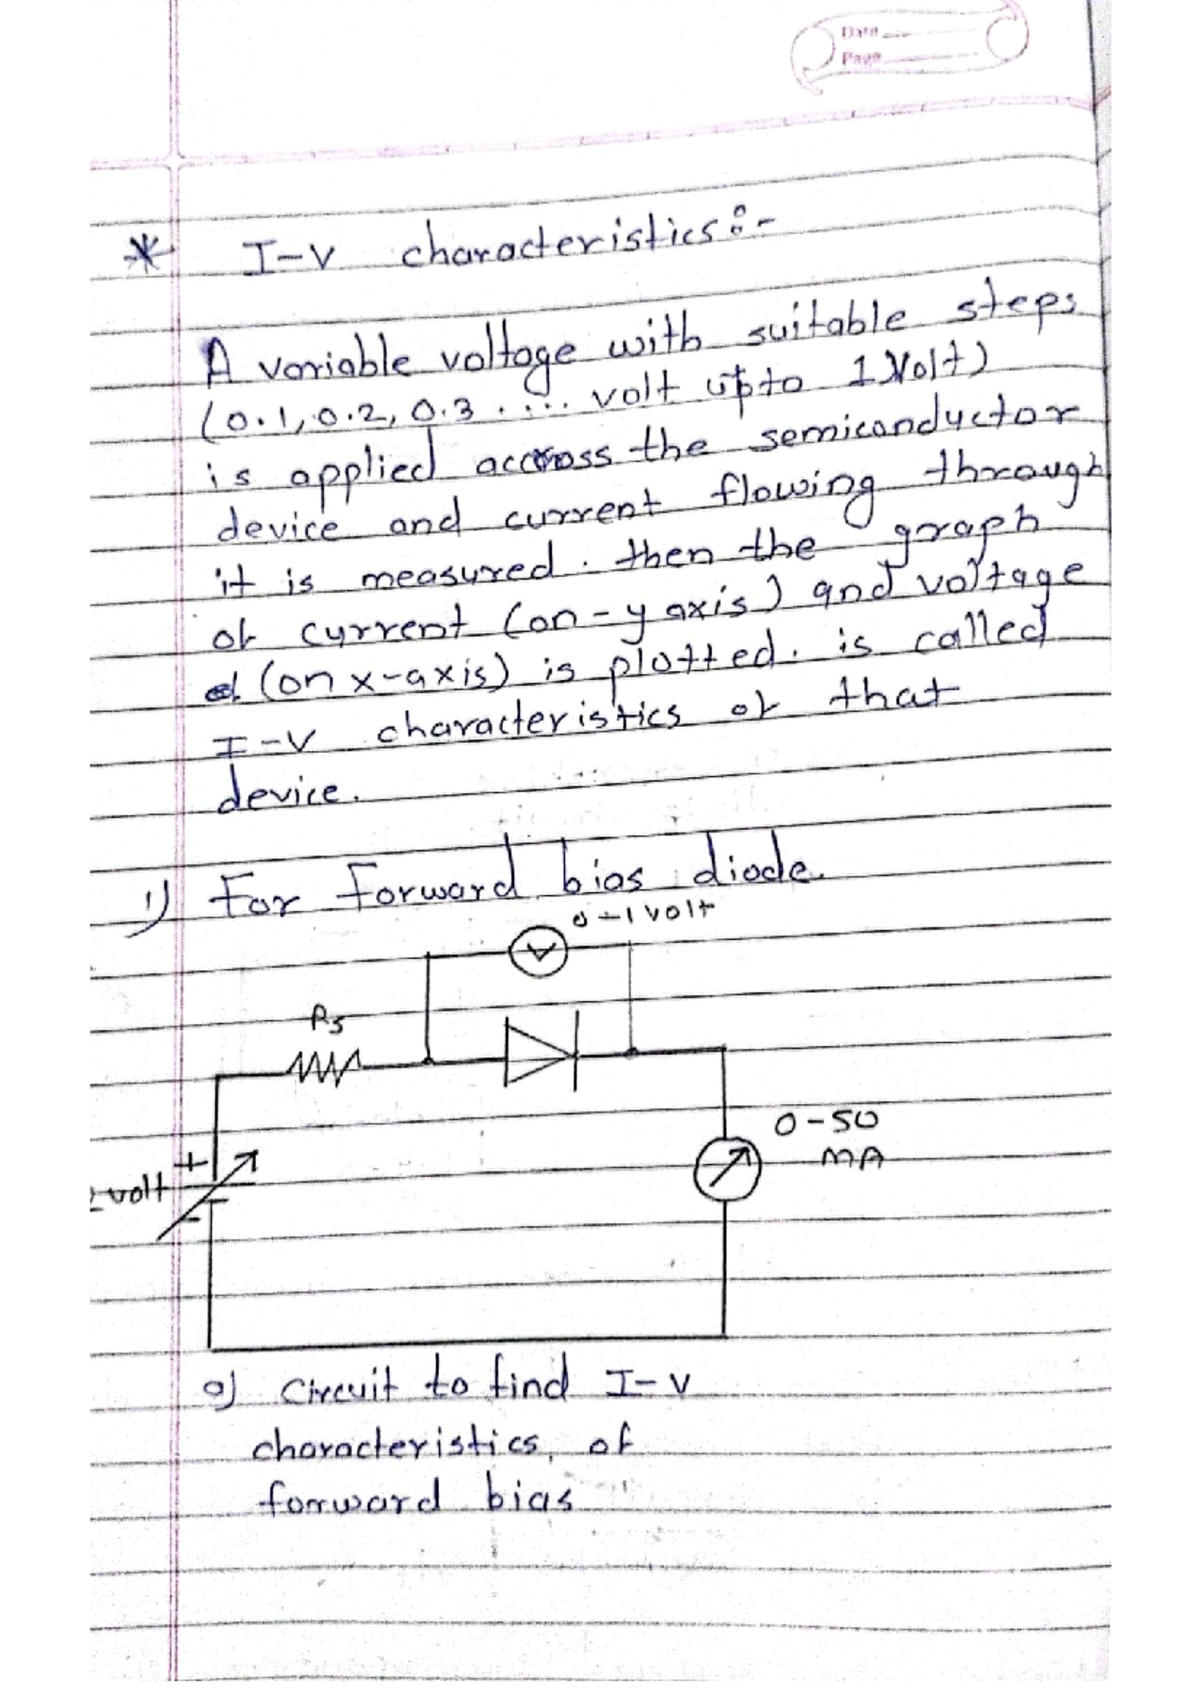 Date
Page
* I-V characteristics :-
A variable voltage with suitable steps
(0.1, 0.2, 0.3 .... volt upto 1 Volt)
is applied accross the semiconductor
device and current flowing through
it is measured. then the graph
of current (on-y axis) and voltage
(on x-axis) is plotted. is called
I-V characteristics of that
device.
1) For Forward bias diode.
0-1 volt
V
Rs
0-50
mA
+
volt
-
a) Circuit to find I-V
characteristics of
forward bias